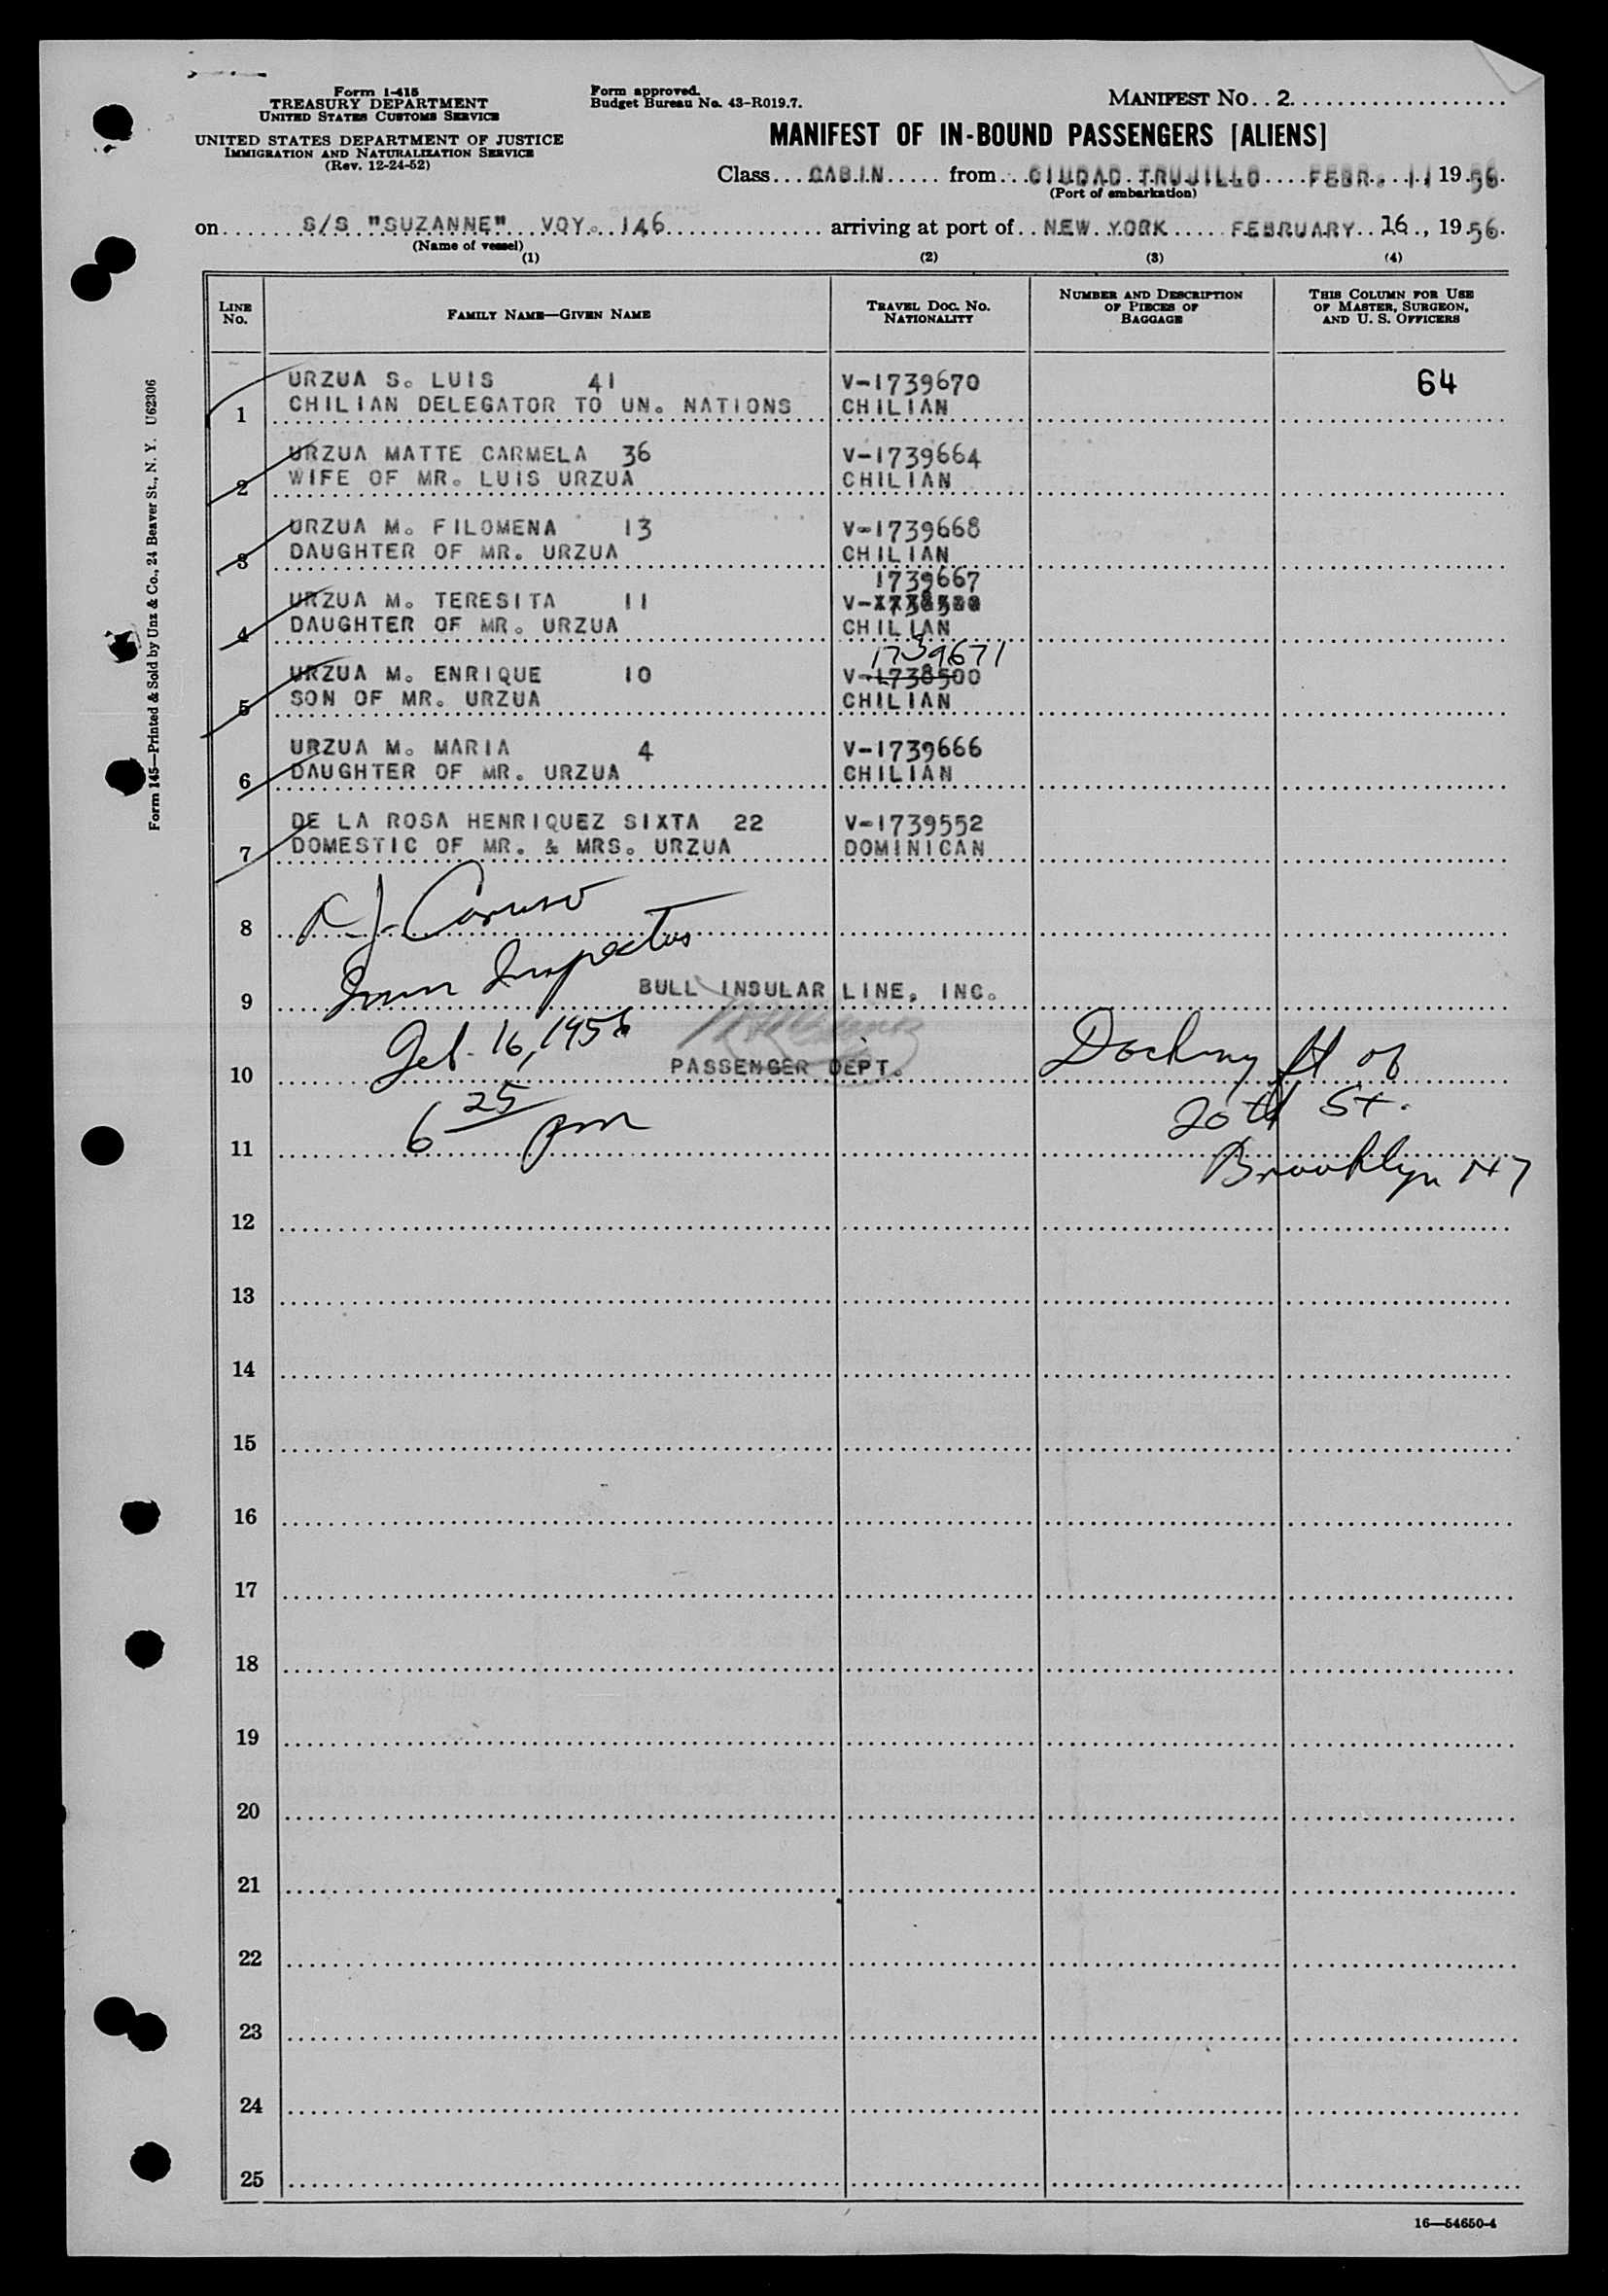 Form I-415
TREASURY DEPARTMENT
UNITED STATES CUSTOMS SERVICE
UNITED STATES DEPARTMENT OF JUSTICE
IMMIGRATION AND NATURALIZATION SERVICE
(Rev. 12-24-52)
Form approved.
Budget Bureau No. 43-R019.7.
MANIFEST No. 2
MANIFEST OF IN-BOUND PASSENGERS [ALIENS]
Class CABIN from CIUDAD TRUJILLO FEBR. 11 1956.
(Port of embarkation)
on S/S "SUZANNE" VOY. 146 arriving at port of NEW YORK FEBRUARY 16, 1956.
(Name of vessel)
(1) (2) (3) (4)
LINE No. FAMILY NAME—GIVEN NAME TRAVEL DOC. No. NATIONALITY NUMBER AND DESCRIPTION OF PIECES OF BAGGAGE THIS COLUMN FOR USE OF MASTER, SURGEON, AND U. S. OFFICERS
URZUA S. LUIS 41 V-1739670 64
1 CHILIAN DELEGATOR TO UN. NATIONS CHILIAN
URZUA MATTE CARMELA 36 V-1739664
2 WIFE OF MR. LUIS URZUA CHILIAN
URZUA M. FILOMENA 13 V-1739668
3 DAUGHTER OF MR. URZUA CHILIAN
1739667
URZUA M. TERESITA 11 V-
4 DAUGHTER OF MR. URZUA CHILIAN
1739671
URZUA M. ENRIQUE 10 V-1738500
5 SON OF MR. URZUA CHILIAN
URZUA M. MARIA 4 V-1739666
6 DAUGHTER OF MR. URZUA CHILIAN
DE LA ROSA HENRIQUEZ SIXTA 22 V-1739552
7 DOMESTIC OF MR. & MRS. URZUA DOMINICAN
8 J. Caruso
Imm Inspector
9 BULL INSULAR LINE, INC.
Feb. 16, 1956
10 PASSENGER DEPT. Docking ft of
6 25 pm 20th St.
11 Brooklyn NY
12
13
14
15
16
17
18
19
20
21
22
23
24
25
16—54650-4
Form 145—Printed & Sold by Unz & Co., 24 Beaver St., N. Y. U62306